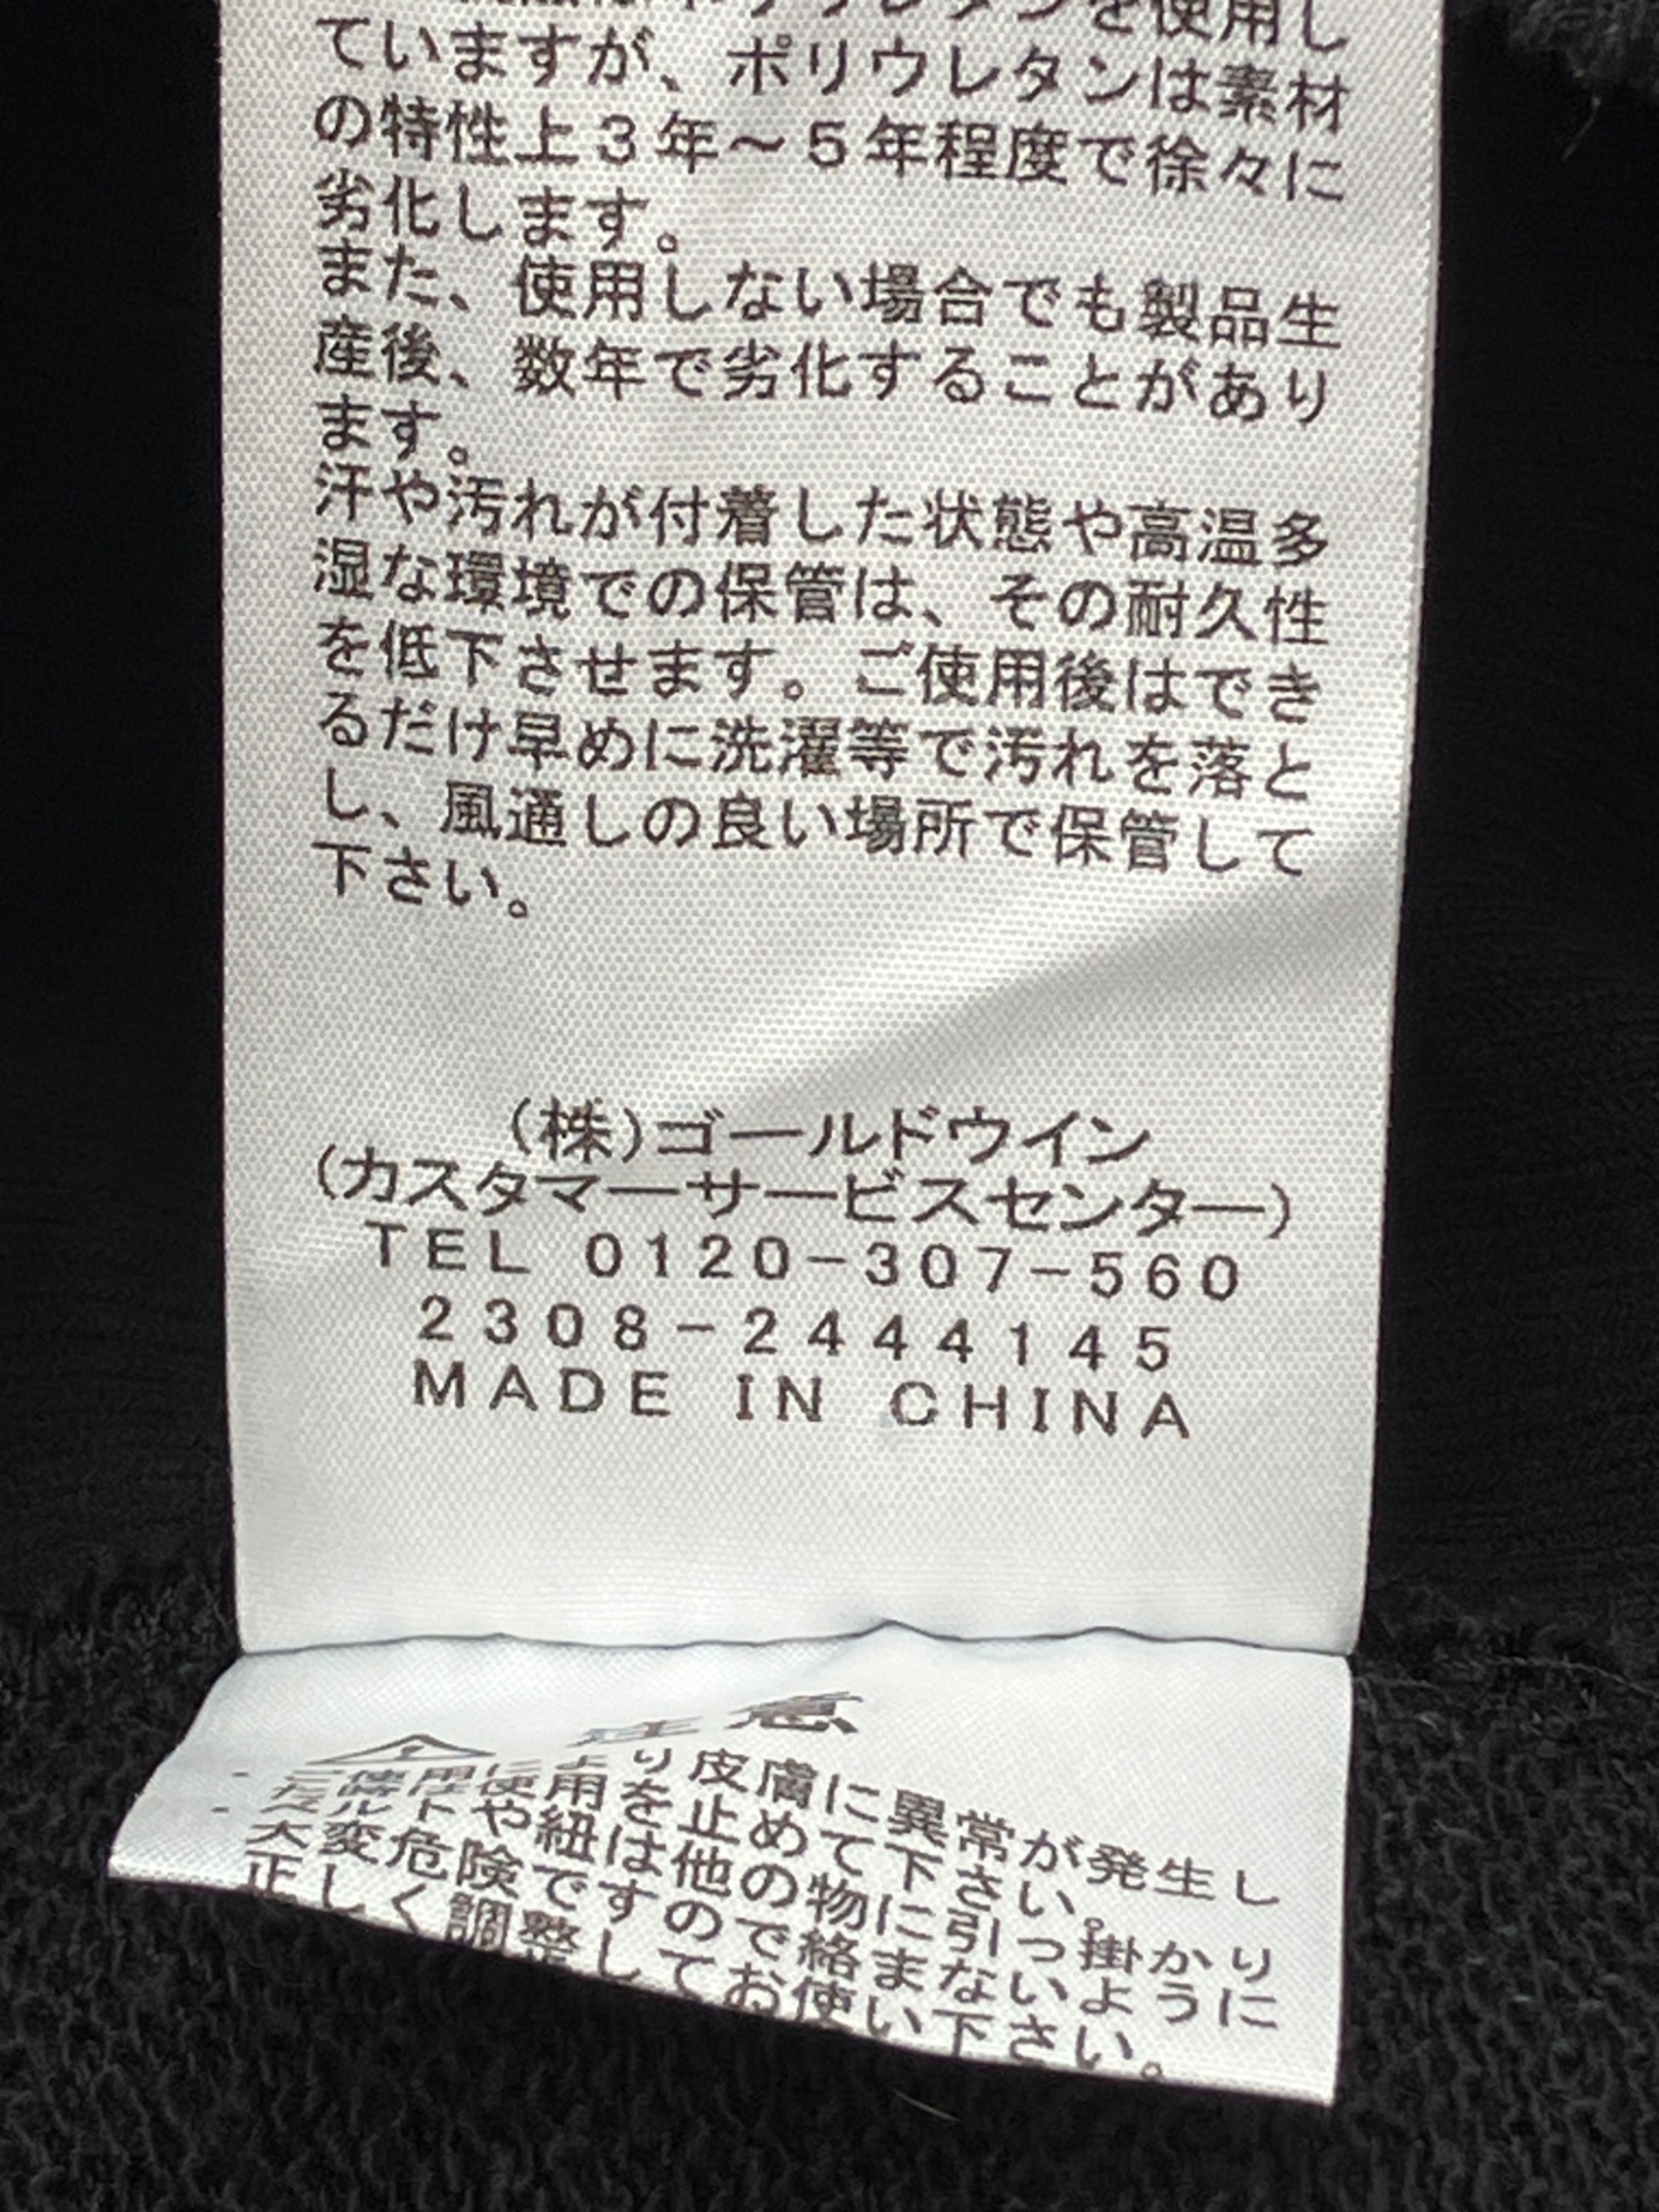 ポリウレタンを使用し
ていますが、ポリウレタンは素材
の特性上3年〜5年程度で徐々に
劣化します。
また、使用しない場合でも製品生
産後、数年で劣化することがあり
ます。
汗や汚れが付着した状態や高温多
湿な環境での保管は、その耐久性
を低下させます。ご使用後はでき
るだけ早めに洗濯等で汚れを落と
し、風通しの良い場所で保管して
下さい。
(株)ゴールドウイン
(カスタマーサービスセンター)
TEL 0120-307-560
2308-2444145
MADE IN CHINA
注意
・ご使用により皮膚に異常が発生し
た時は使用を止めて下さい。
・ベルトや紐は他の物に引っ掛かり
大変危険ですので絡まないように
正しく調整してお使い下さい。